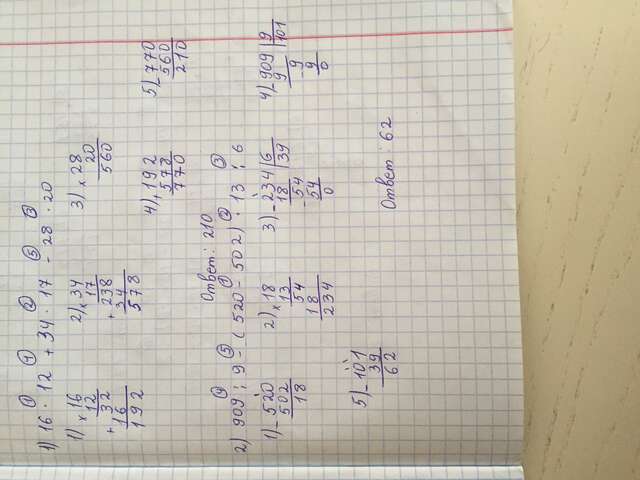 ① ④ ② ⑤ ③
1) 16 · 12 + 34 · 17 - 28 · 20
1) × 16
12
+ 32
16
192
2) × 34
17
+ 238
34
578
3) × 28
20
560
4) + 192
578
770
5) - 770
560
210
Ответ: 210
④ ⑤ ① ② ③
2) 909 : 9 - (520 - 502) · 13 : 6
1) - 520
502
18
2) × 18
13
54
18
234
3) - 234 | 6
18 | 39
- 54
54
0
4) - 909 | 9
9 | 101
- 9
9
0
5) - 101
39
62
Ответ: 62